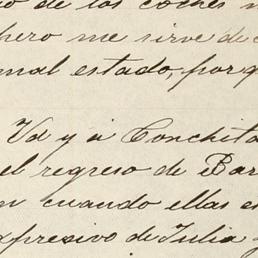 io de los coches n
pero me sirve de c
mal estado, porq
Va y á Conchita
el regreso de Bar
n cuando ellas es
expresivo de Julia y